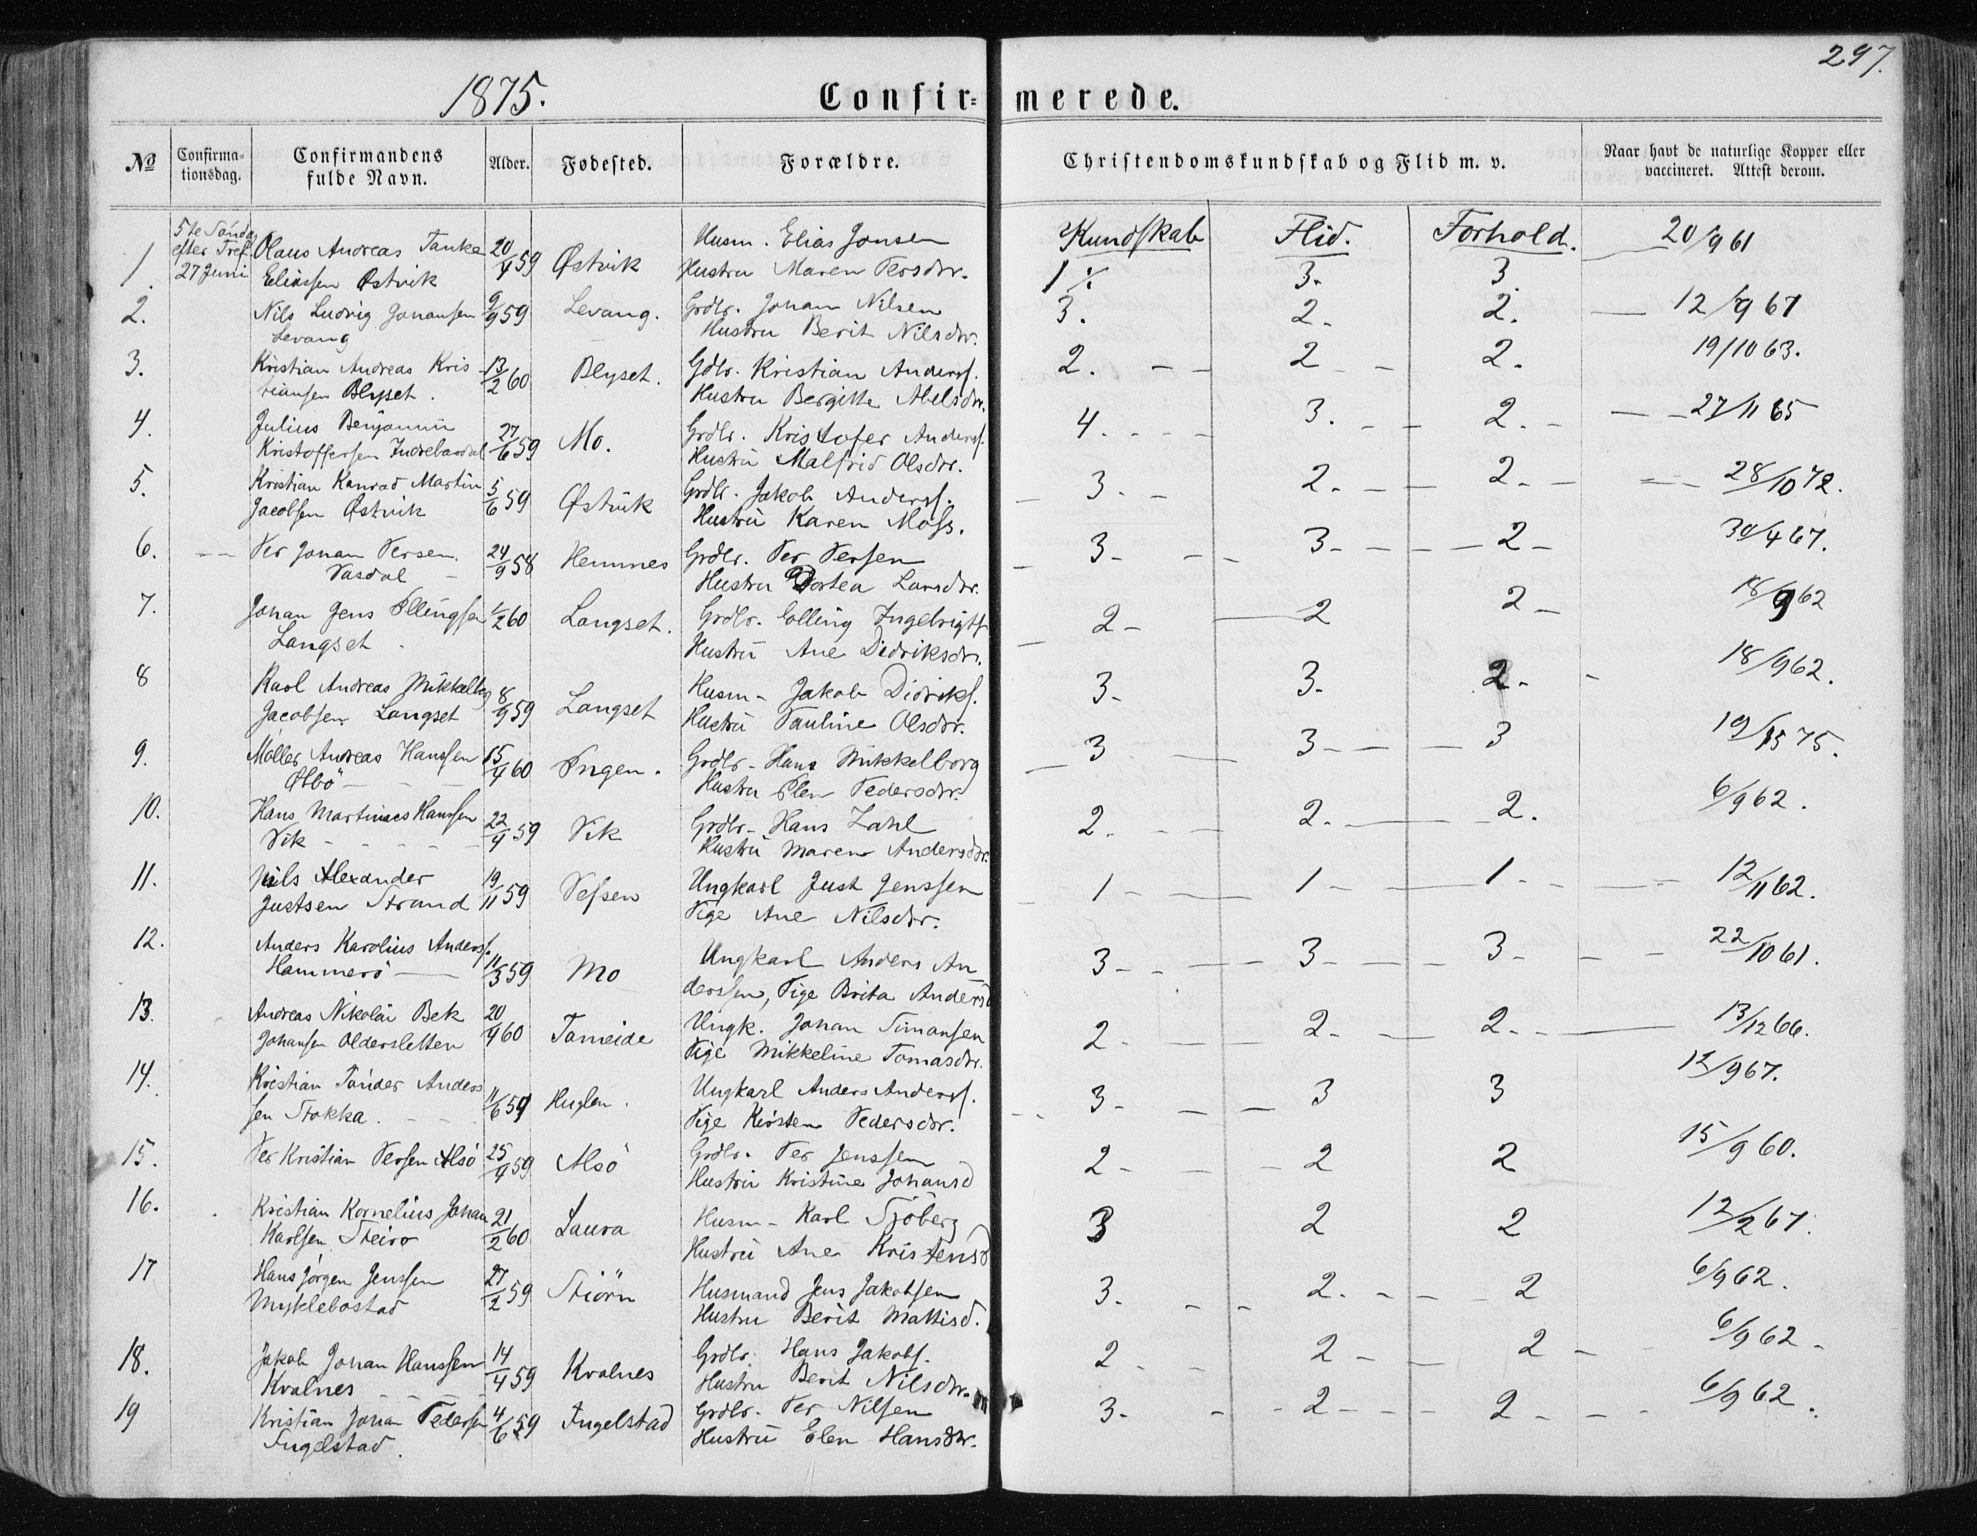 297.
1875.
Confir= merede.
No Confirma-tionsdag. Confirmandens fulde Navn. Alder. Fødested. Forældre. Christendomskundskab og Flid m. v. Naar havt de naturlige Kopper eller vaccineret. Attest derom.
Kundskab Flid. Forhold.
5te Sønda efter Tref. 27 Juni
1. Olaus Andreas Tanke 20/4 59 Østvik Husm. Elias Jonsen 20/9 61
Eliassen Østvik Hustru Maren Persdtr. 1 3. 3.
2. Nils Ludvig Johansen 9/9 59 Levang. Grdbr. Johan Nilsen 3. 2. 2. 12/9 67
Levang Hustru Berit Nilsdtr.
3. Kristian Andreas Kris 13/2 60 Blyset. Gdbr. Kristian Anderss. 2. 2 2. 19/10 63.
tiansen Blyset. Hustru Bergitte Abelsdtr.
4. Julius Benjamin 27/6 59 Mo. Grdbr. Kristofer Anderss. 4. 3. 2. 27/11 65
Kristoffersen Hustru Malfrid Olsdtr.
5. Kristian Konrad Martin 5/6 59 Østvik Grdbr. Jakob Anderss. 3. 2. 2. 28/10 72.
Jacobsen Østvik Hustru Karen Moss.
6. Per Johan Persen 24/9 58 Hemnes Grdbr. Per Persen 3 3 2 30/4 67.
Vasdal Hustru Dortea Larsdtr.
7. Johan Jens Ellingsen 1/2 60 Langset. Grdbr. Elling Ingebrigts 2 2 2 18/9 62
Langset Hustru Ane Didriksdtr.
8 Karl Andreas Mikkelbg 8/9 59 Langset Husm. Jakob Didriks. 3. 3. 2. 18/9 62.
Jacobsen Langset Hustru Pauline Olsdtr.
9. Møller Andreas Hanssen 15/4 60 Engen. Grdbr. Hans Mikkelborg 3 3 3 75.
Hustru Elen Pedersdtr.
10. Hans Martinus Hanssen 22/4 59 Vik Grdbr. Hans Zahl 2. 2. 2. 6/9 62.
Vik Hustru Maren Andersdtr.
11. Nils Alexander 19/11 59 Vefsen Ungkarl Just Jenssen 1 1 1 12/11 62.
Justsen Strand Pige Ane Nilsdtr.
12. Anders Karolius Anderss. 11/3 59 Mo Ungkarl Anders An 3 3 3 22/10 61.
Hammerø derssen, Pige Brita Andersd
13. Andreas Nikolai Bek 20/4 60 Tomeide Ungk. Johan Simonsen 2 2 2 13/12 66.
Johansen Oldersletten Pige Mikkeline Tomasdtr.
14. Kristian Tønder Anders 11/6 59 Huglen. Ungkarl Anders Anderss. 3 3 3 12/9 67.
sen Stokka Pige Kirsten Pedersdtr.
15. Per Kristian Persen Alsö 25/4 59 Alsö Grdbr. Per Jenssen 2 2 2 15/9 60.
Hustru Kristine Johansd
16. Kristian Kornelius Johan 21/2 60 Laura Husm. Karl Sjöberg 3 2 2 12/2 67.
Karlsen Steiro Hustru Ane Kristensd
17 Hans Jørgen Jenssen 27/2 59 Stiörn Husmand Jens Jakobsen 3. 2. 2 6/9 62.
Myklebostad Hustru Berit Mattisd.
18. Jakob Johan Hanssen 14/4 59 Kvalnes Grdbr. Hans Jakobs. 2 2 2 6/9 62
Kvalnes Hustru Berit Nilsdtr.
19 Kristian Johan Pedersen 4/6 59 Fugelstad Grdbr. Per Nilsen 3. 2 2 6/9 62
Fugelstad. Hustru Elen Hansdtr.